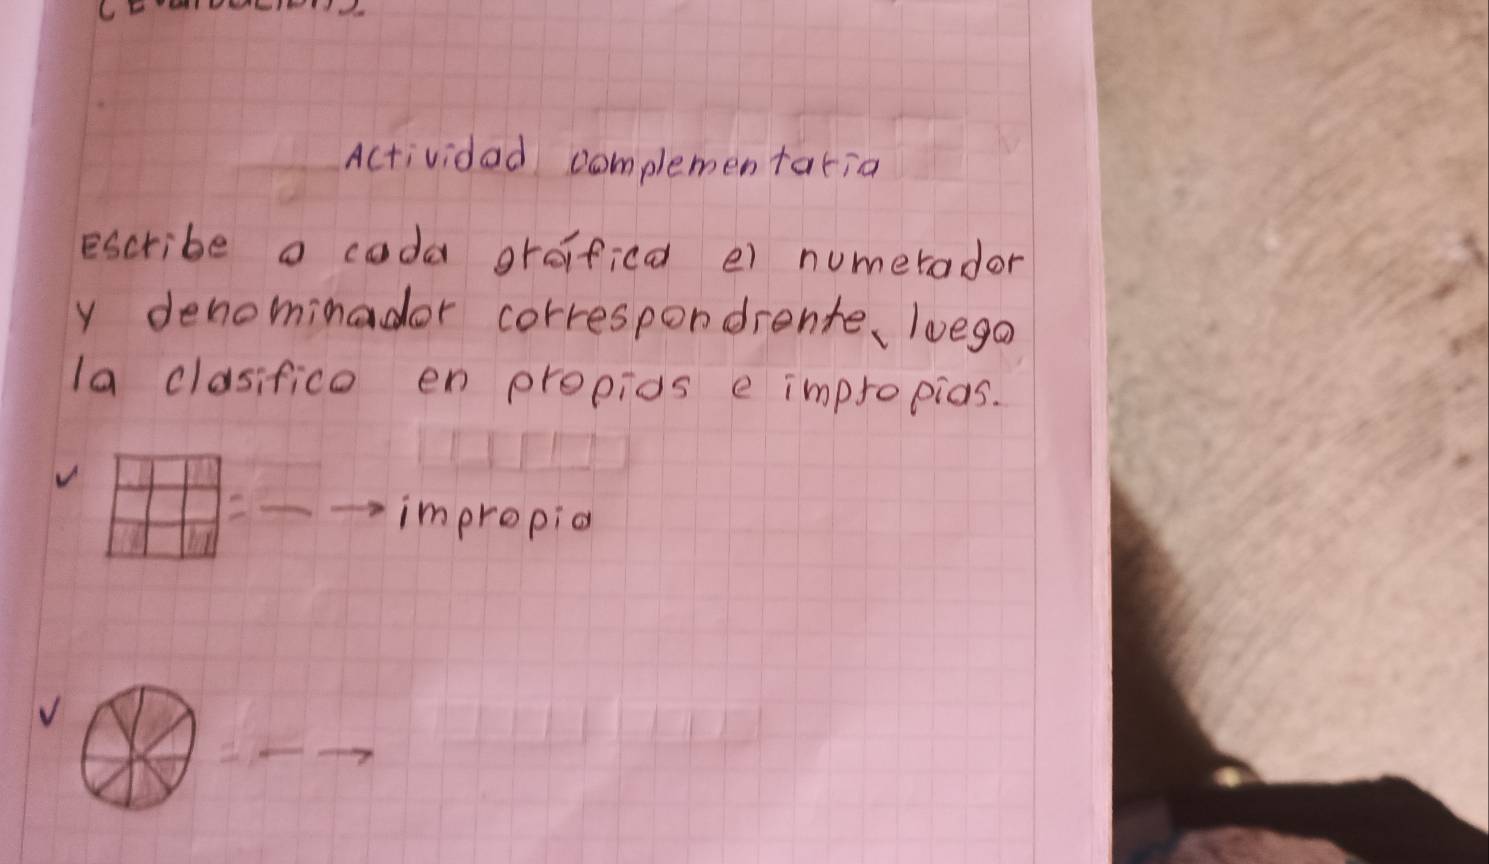 Actividad complementaria
Escribe a cada gráfica el numerador
y denominador correspondiente, luego
la clasifico en propias e impropias.
= — → impropia
= — →